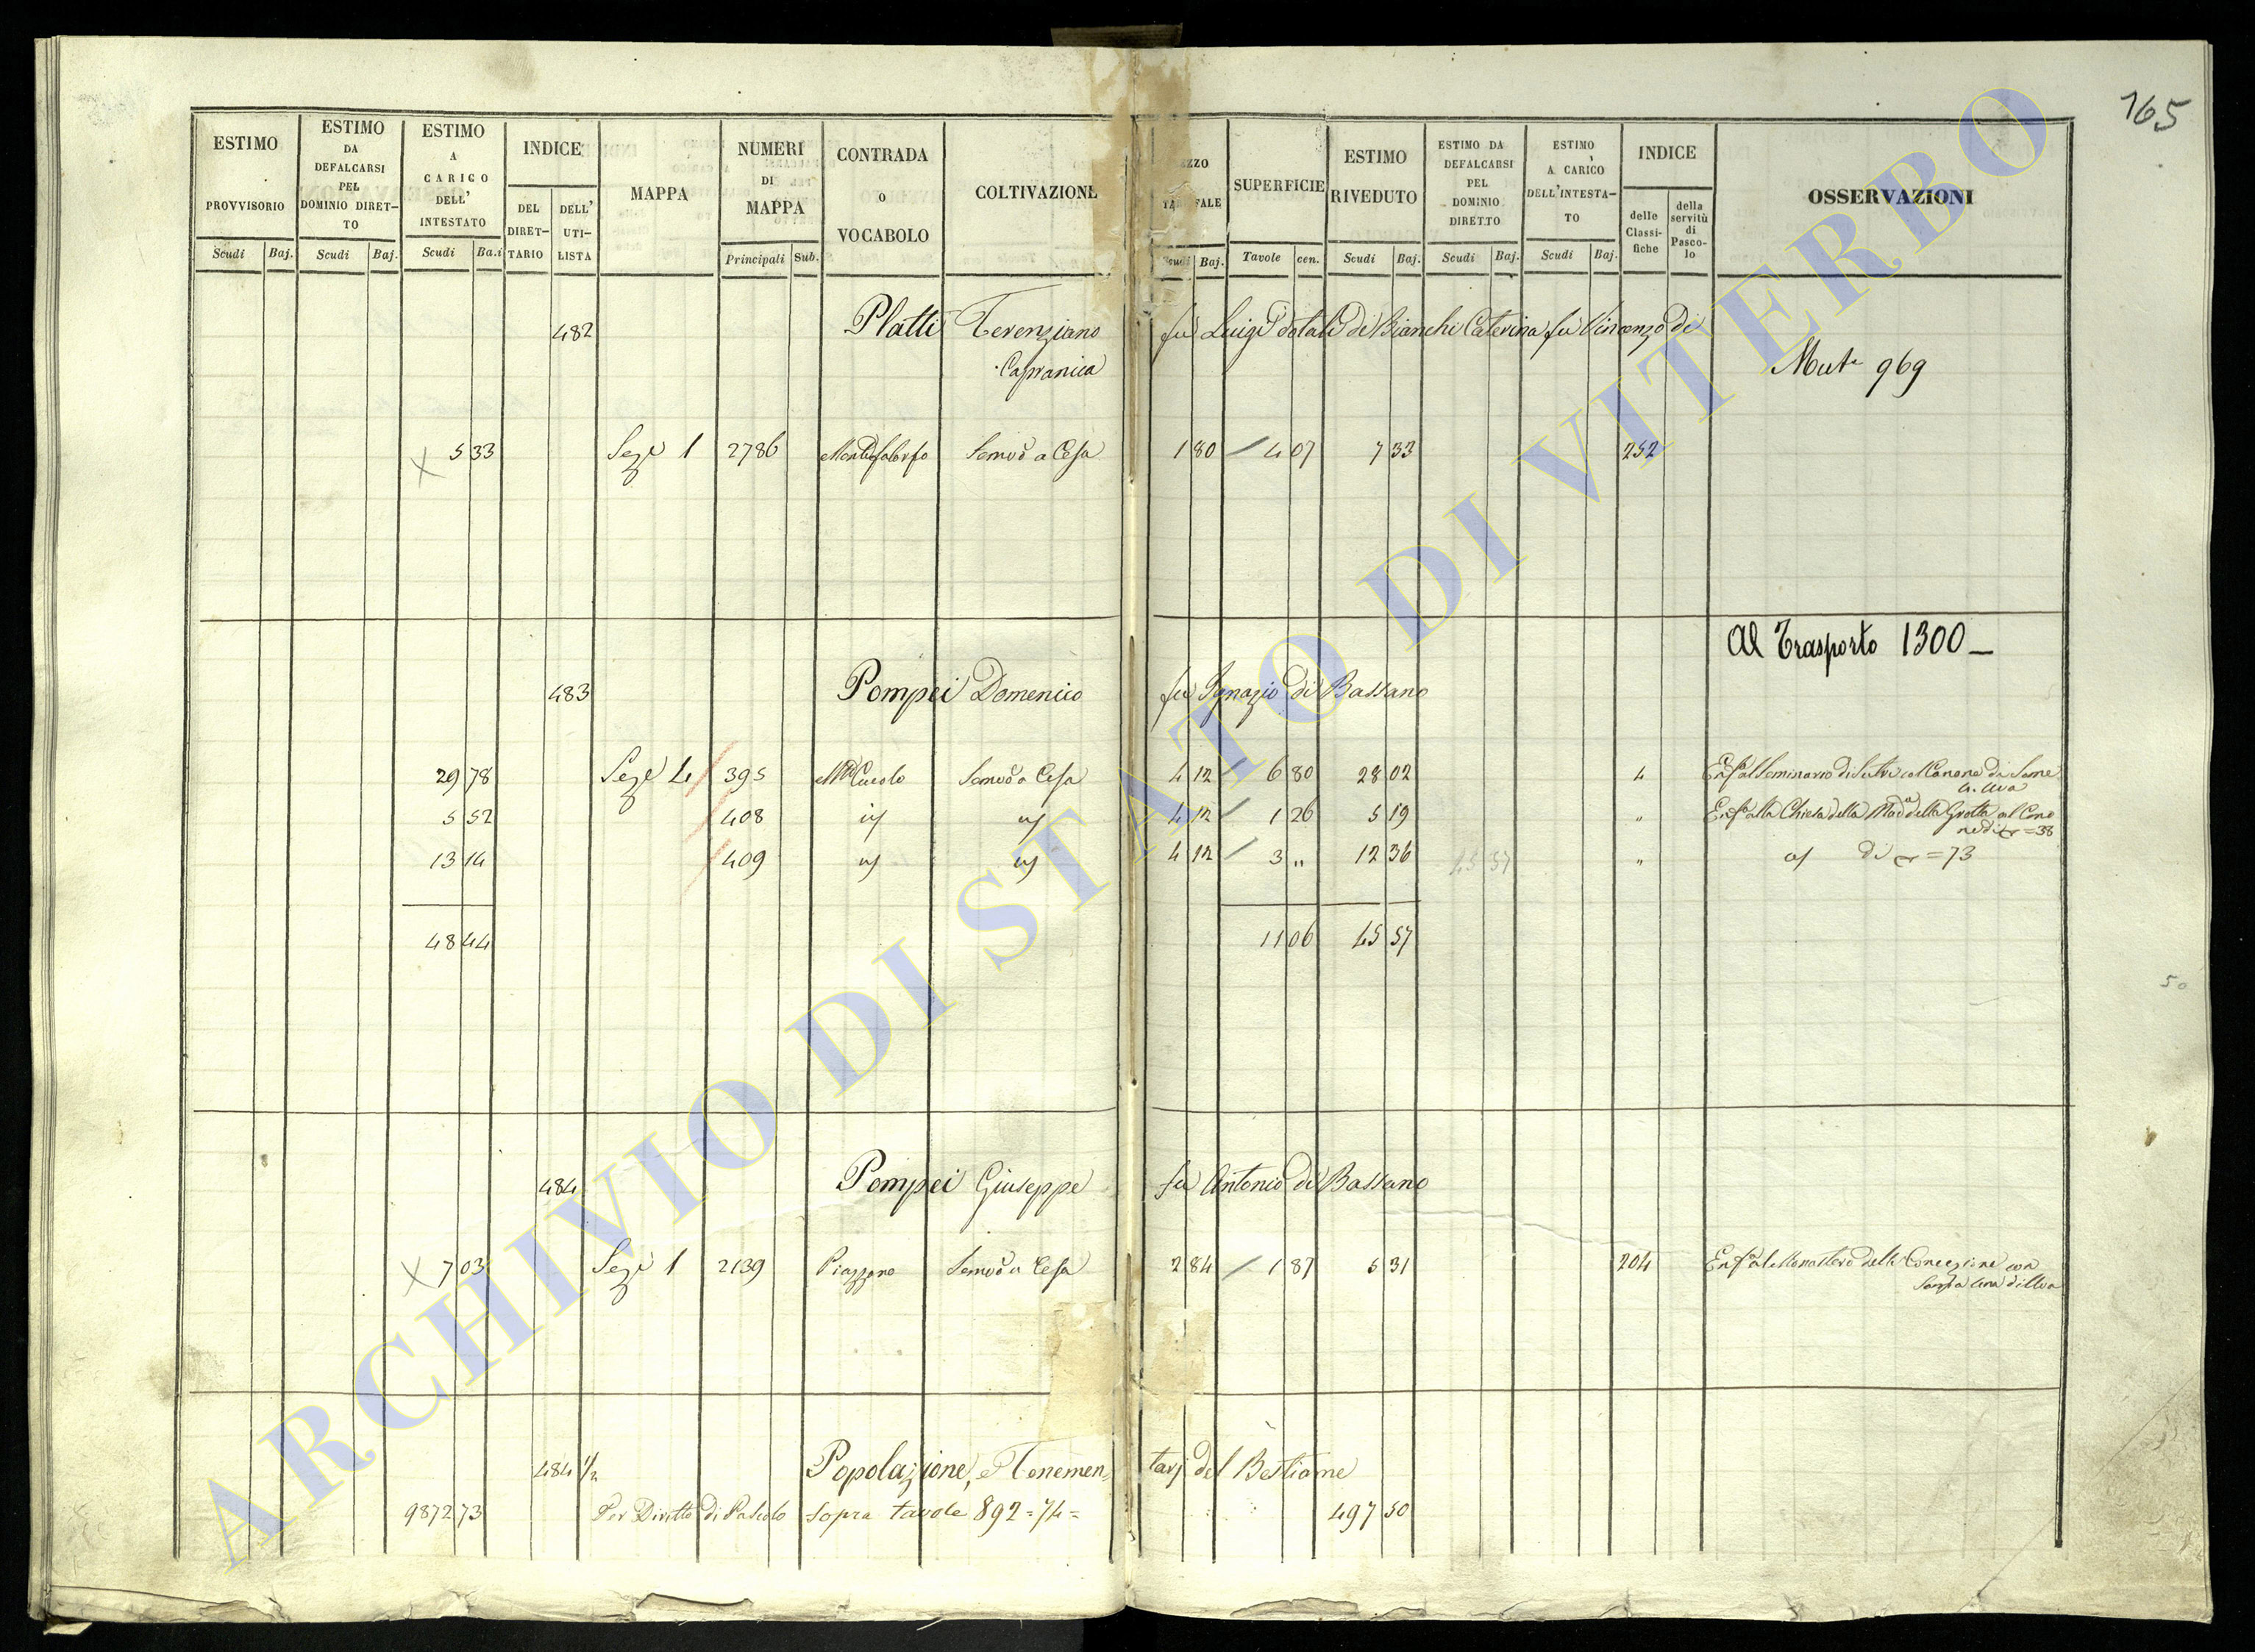 165
ESTIMO PROVVISORIO
Scudi Baj.
ESTIMO DA DEFALCARSI PEL DOMINIO DIRET-TO
Scudi Baj.
ESTIMO A CARICO DELL' INTESTATO
Scudi Ba.i
INDICE
DEL DIRET-TARIO
DELL' UTI-LISTA
MAPPA
NUMERI DI MAPPA
Principali Sub.
CONTRADA o VOCABOLO
COLTIVAZIONE
Scudi Baj.
SUPERFICIE
Tavole cen.
ESTIMO RIVEDUTO
Scudi Baj.
ESTIMO DA DEFALCARSI PEL DOMINIO DIRETTO
Scudi Baj.
ESTIMO A CARICO DELL'INTESTA-TO
Scudi Baj.
INDICE
delle Classi-fiche
della servitù di Pasco-lo
OSSERVAZIONI
482 Platti Terenziano fu Luigi dotali di Bianchi Caterina fu Vincenzo di
Capranica
Mut.e 969
5 33 Sez.e 1 2786 Semvo a Cesa 1 80 4 07 7 33 252
Al Trasporto 1300 -
483 Pompei Domenico fu Ignazio di Bassano
29 78 Sez.e 4 395 Mte Cucolo Semvo a Cesa 4 12 6 80 28 02 4 Enf.a al Seminario di Sutri col Canone di Some
5 52 408 id id 4 12 1 26 5 19 " Enf.a alla Chiesa della Mad.a della Grotta al Cano
ne di = 38
13 14 409 id id 4 12 3 " 12 36 45 57 " id di = 73
48 44 11 06 45 57
50
484 Pompei Giuseppe fu Antonio di Bassano
7 03 Sez.e 1 2139 Piazzano Semvo a Cesa 2 84 1 87 5 31 204 Enf.a al Monastero della Concezione con
484 1/2 Popolazione, e Tenemen, tarj del Bestiame
9872 73 Per Diritto di Pascolo sopra tavole 892 = 74 = 497 50
ARCHIVIO DI STATO DI VITERBO